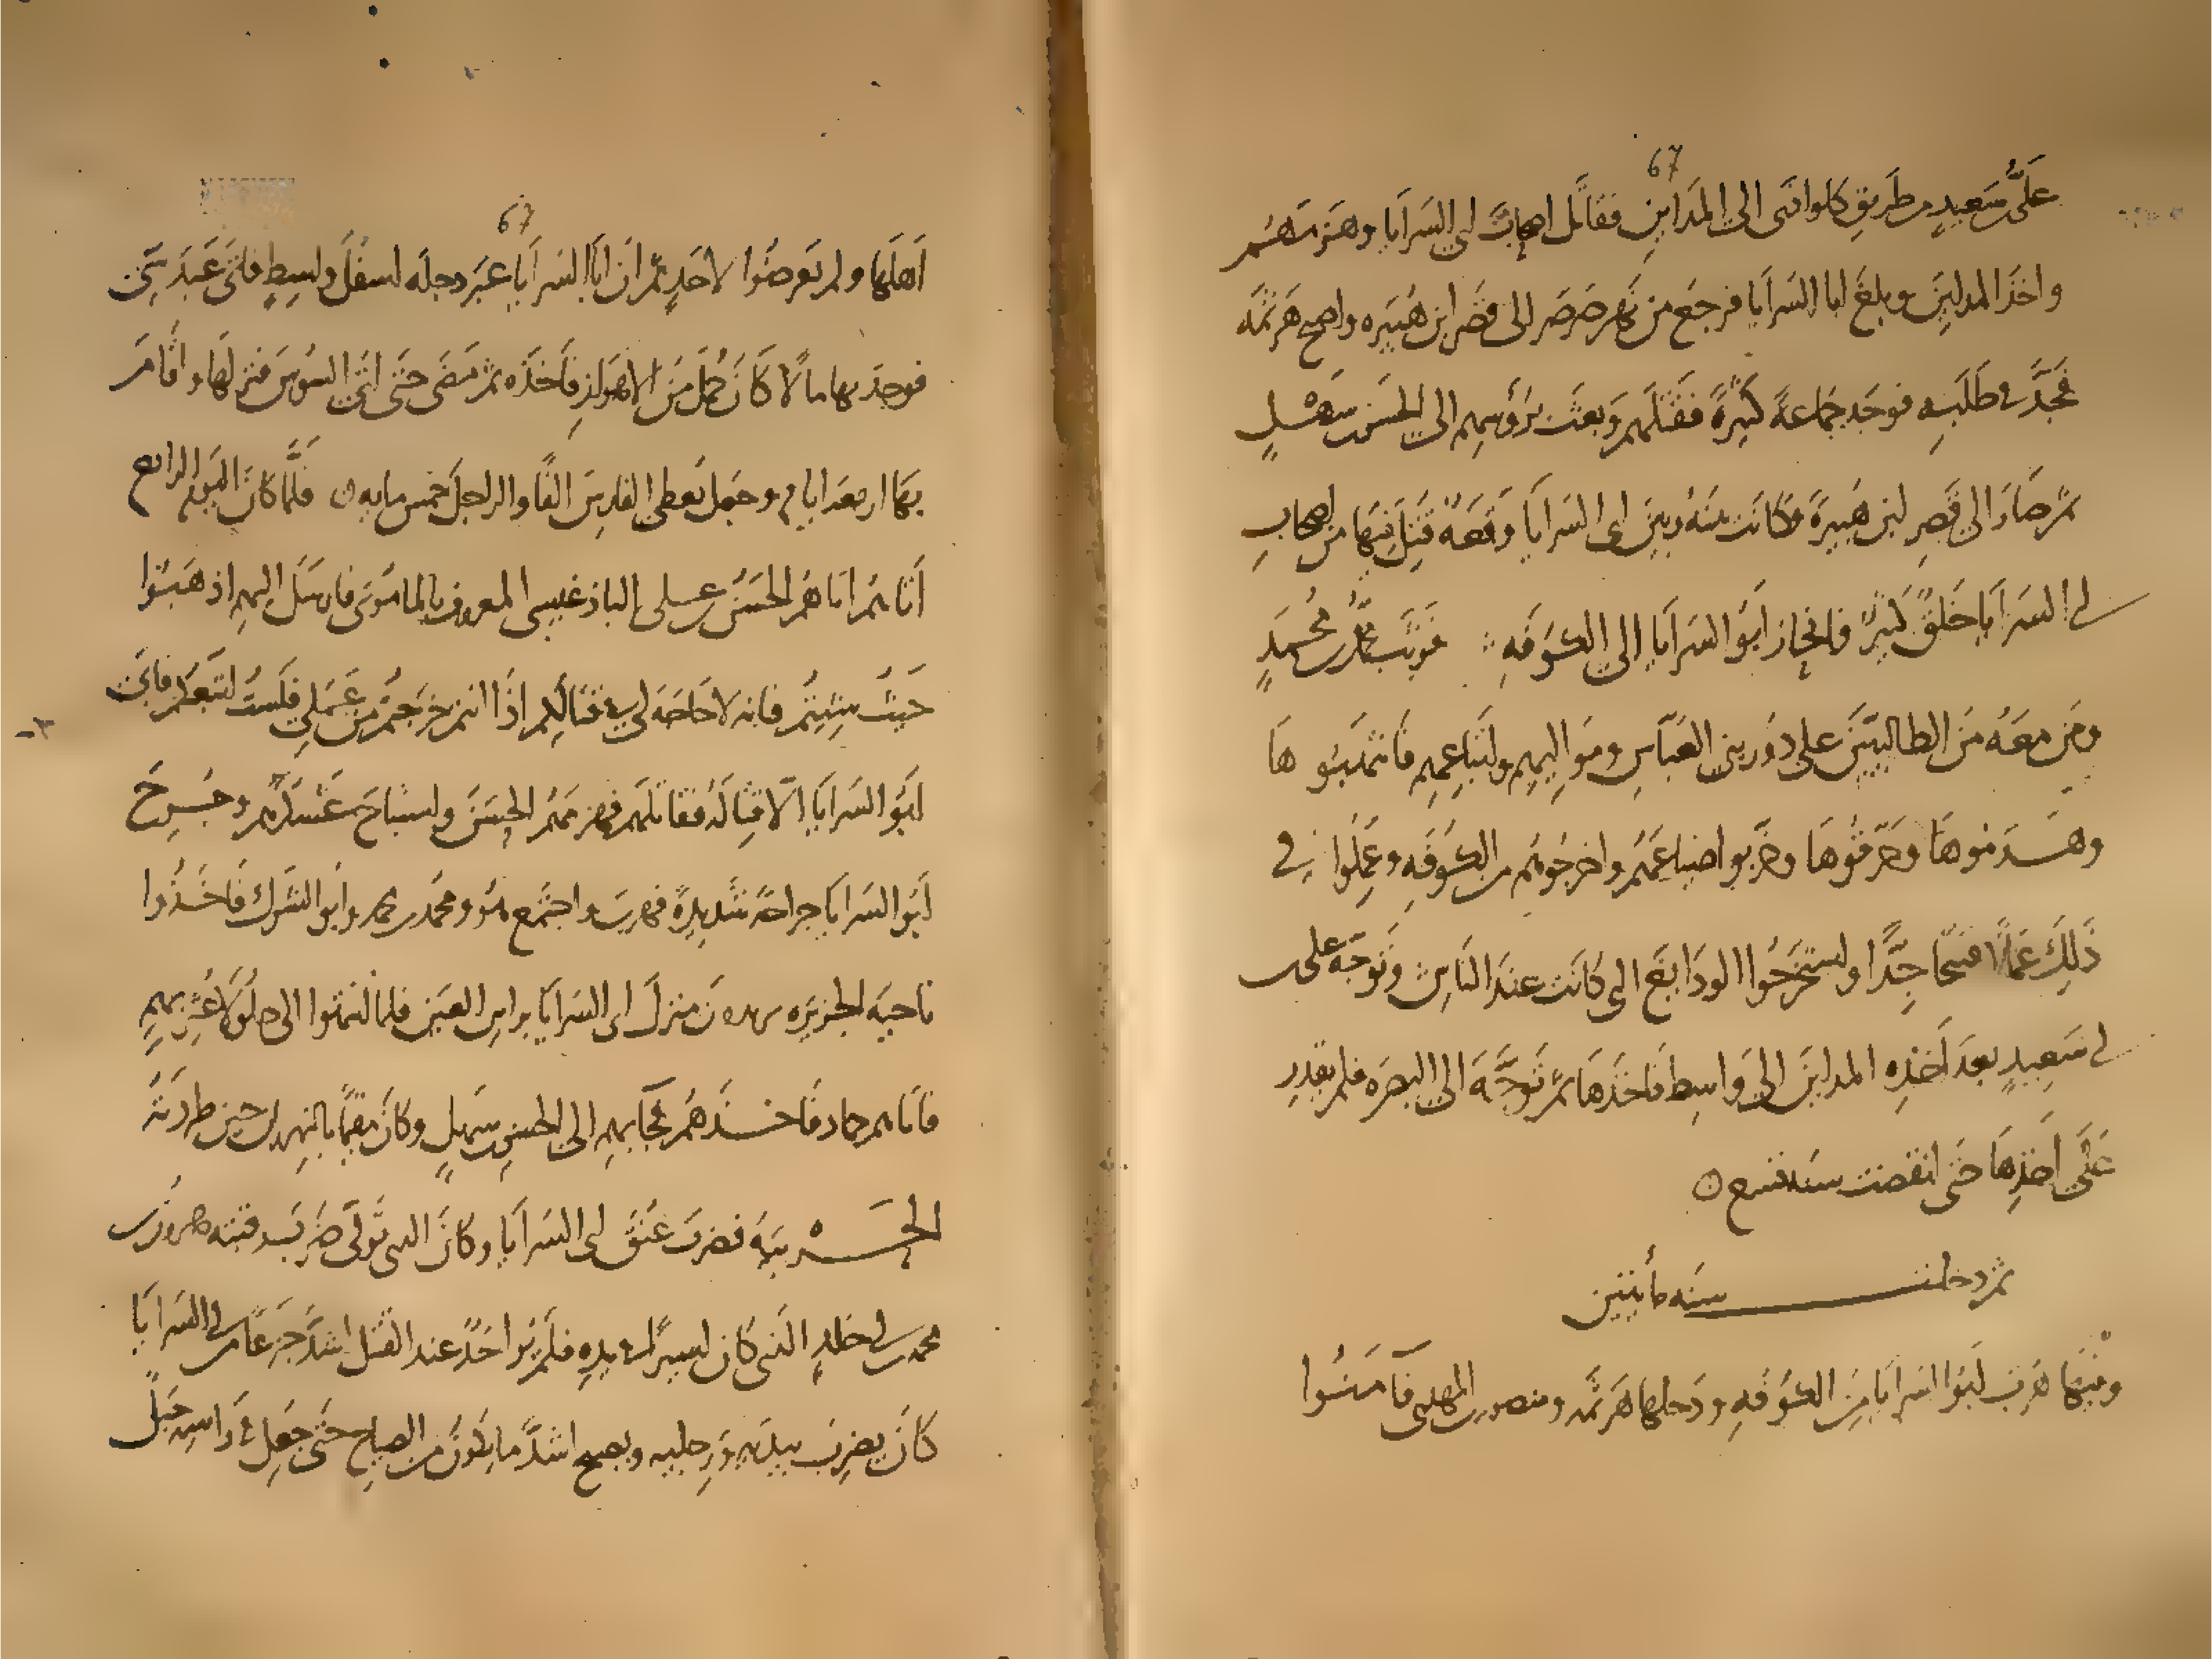 67
على بن سعيد من طريق كلواذى الى المداين فقاتل اصحاب ابي السرايا وهزمهم
واخذ المداين وبلغ ابا السرايا فرجع من نهر صرصر الى قصر ابن هبيره واصبح هرثمه
فجد في طلبه فوجد جماعة كثيرة فقتلهم وبعث برؤسهم الى الحسن بن سهل
ثم صار الى قصر ابن هبيرة فكانت بينه وبين ابى السرايا وقعة قتل فيها من اصحاب
ابي السرايا خلق كثير فانحاز ابو السرايا الى الكوفه فوثب محمد بن محمد
ومن معه من الطالبيين على دور بني العباس ومواليهم واتباعهم فانتهبوها
وهدموها وحرقوها وخربوا ضياعهم واخرجوهم من الكوفه وعملوا في
ذلك عملا قبيحا جدا واستخرجوا الودايع التي كانت عند الناس وتوجه على بن
ابي سعيد بعد اخذه المداين الى واسط فاخذها ثم توجه الى البصره فلم يقدر
على اخذها حتى انقضت سنه تسع
ثم دخلت سنه مأيتين
وفيها هرب ابو السرايا من الكوفه ودخلها هرثمه ومنصور بن المهدى فآمنوا
67
اهلها ولم يعرضوا لاحد ثم ان ابا السرايا عبر دجله اسفل واسط فاتى عبدسى
فوجد بها مالا كان حمل من الاهواز فاخذه ثم مضى حتى اتى السوس فنزلها واقام
بها اربعة ايام وجعل يعطى الفارس الفا والراجل خمس مايه فلما كان اليوم الرابع
اتاهم الحسن بن على الباذغيسى المعروف بالمامونى فارسل اليهم اذهبوا
حيث شيتم فانه لا حاجه لي في قتالكم اذا انتم خرجتم من عملي فلست اتبعكم فابى
ابو السرايا الا قتاله فقاتلهم فهزمهم الحسن واستباح عسكرهم وجرح
ابو السرايا جراحة شديدة فهرب واجتمع هو ومحمد بن محمد وابو الشوك فاخذوا
ناحيه الجزيره يريدون منزل ابى السرايا براس العين فلما انتهوا الى جلولا عثر بهم
فاتاهم حماد فاخذهم فجا بهم الى الحسن بن سهل وكان مقيما بالنهروان حين طردته
الحربيه فضرب عنق ابى السرايا وكان الذى تولى ضرب رقبته هرون بن
محمد بن ابي خالد الذي كان اسيرا في يده فلم ير احد عند القتل اشد جزعا من ابي السرايا
كان يضرب بيديه ورجليه ويصيح اشد ما يكون من الصياح حتى جعل في راسه حبل